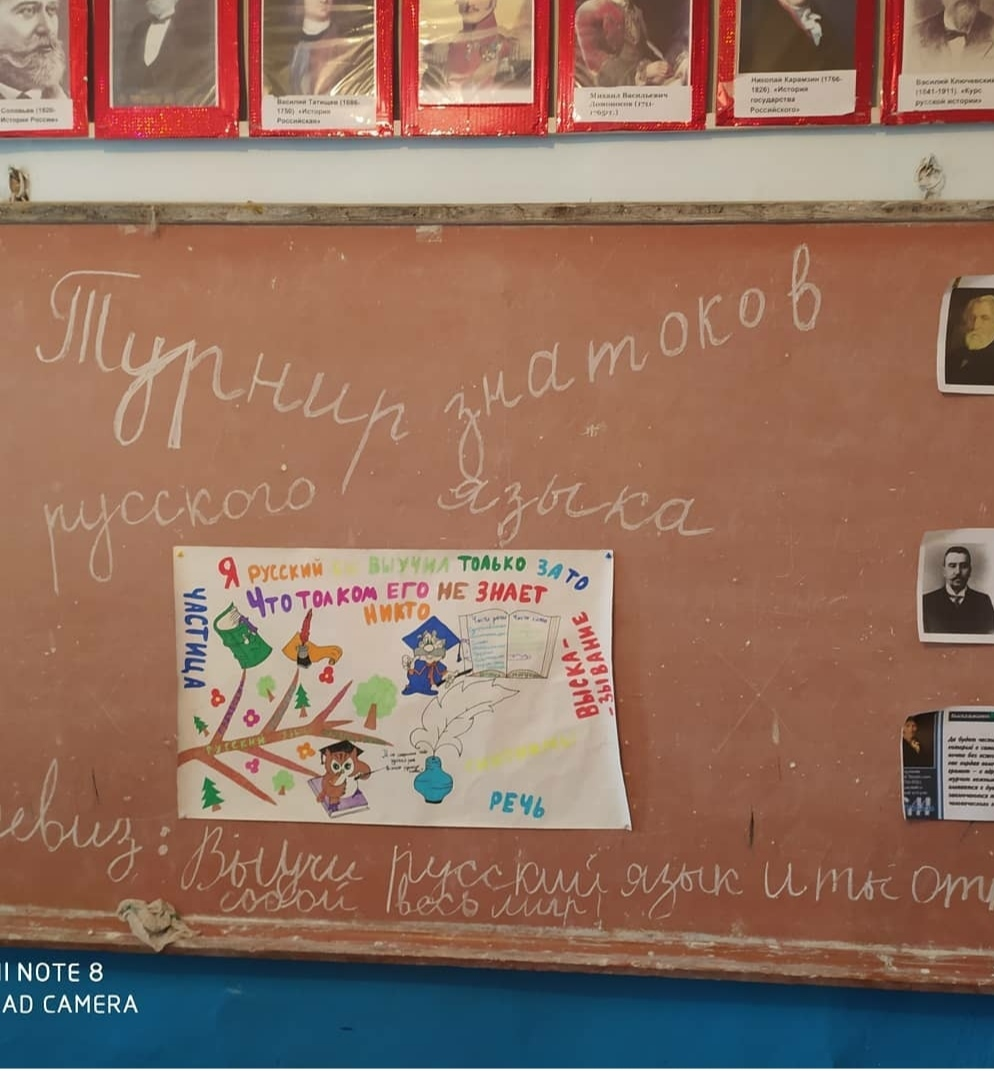 Соловьев (1820-
История России»
Василий Татищев (1686-
1750) «История
Российская»
Михаил Васильевич
Ломоносов (1711-
1765гг.)
Николай Карамзин (1766-
1826) «История
государства
Российского»
Василий Ключевский
(1841-1911) «Курс
русской истории»
Турнир знатоков
русского языка
Я РУССКИЙ ВЫУЧИЛ ТОЛЬКО ЗА ТО
ЧТО ТОЛКОМ ЕГО НЕ ЗНАЕТ
НИКТО
ЧАСТИЦА
Части речи
ВЫСКА-
-ЗЫВАНИЕ
РУССКИЙ
РЕЧЬ
евиз: Выучи русский язык и ты отк
собой весь мир!
II NOTE 8
AD CAMERA